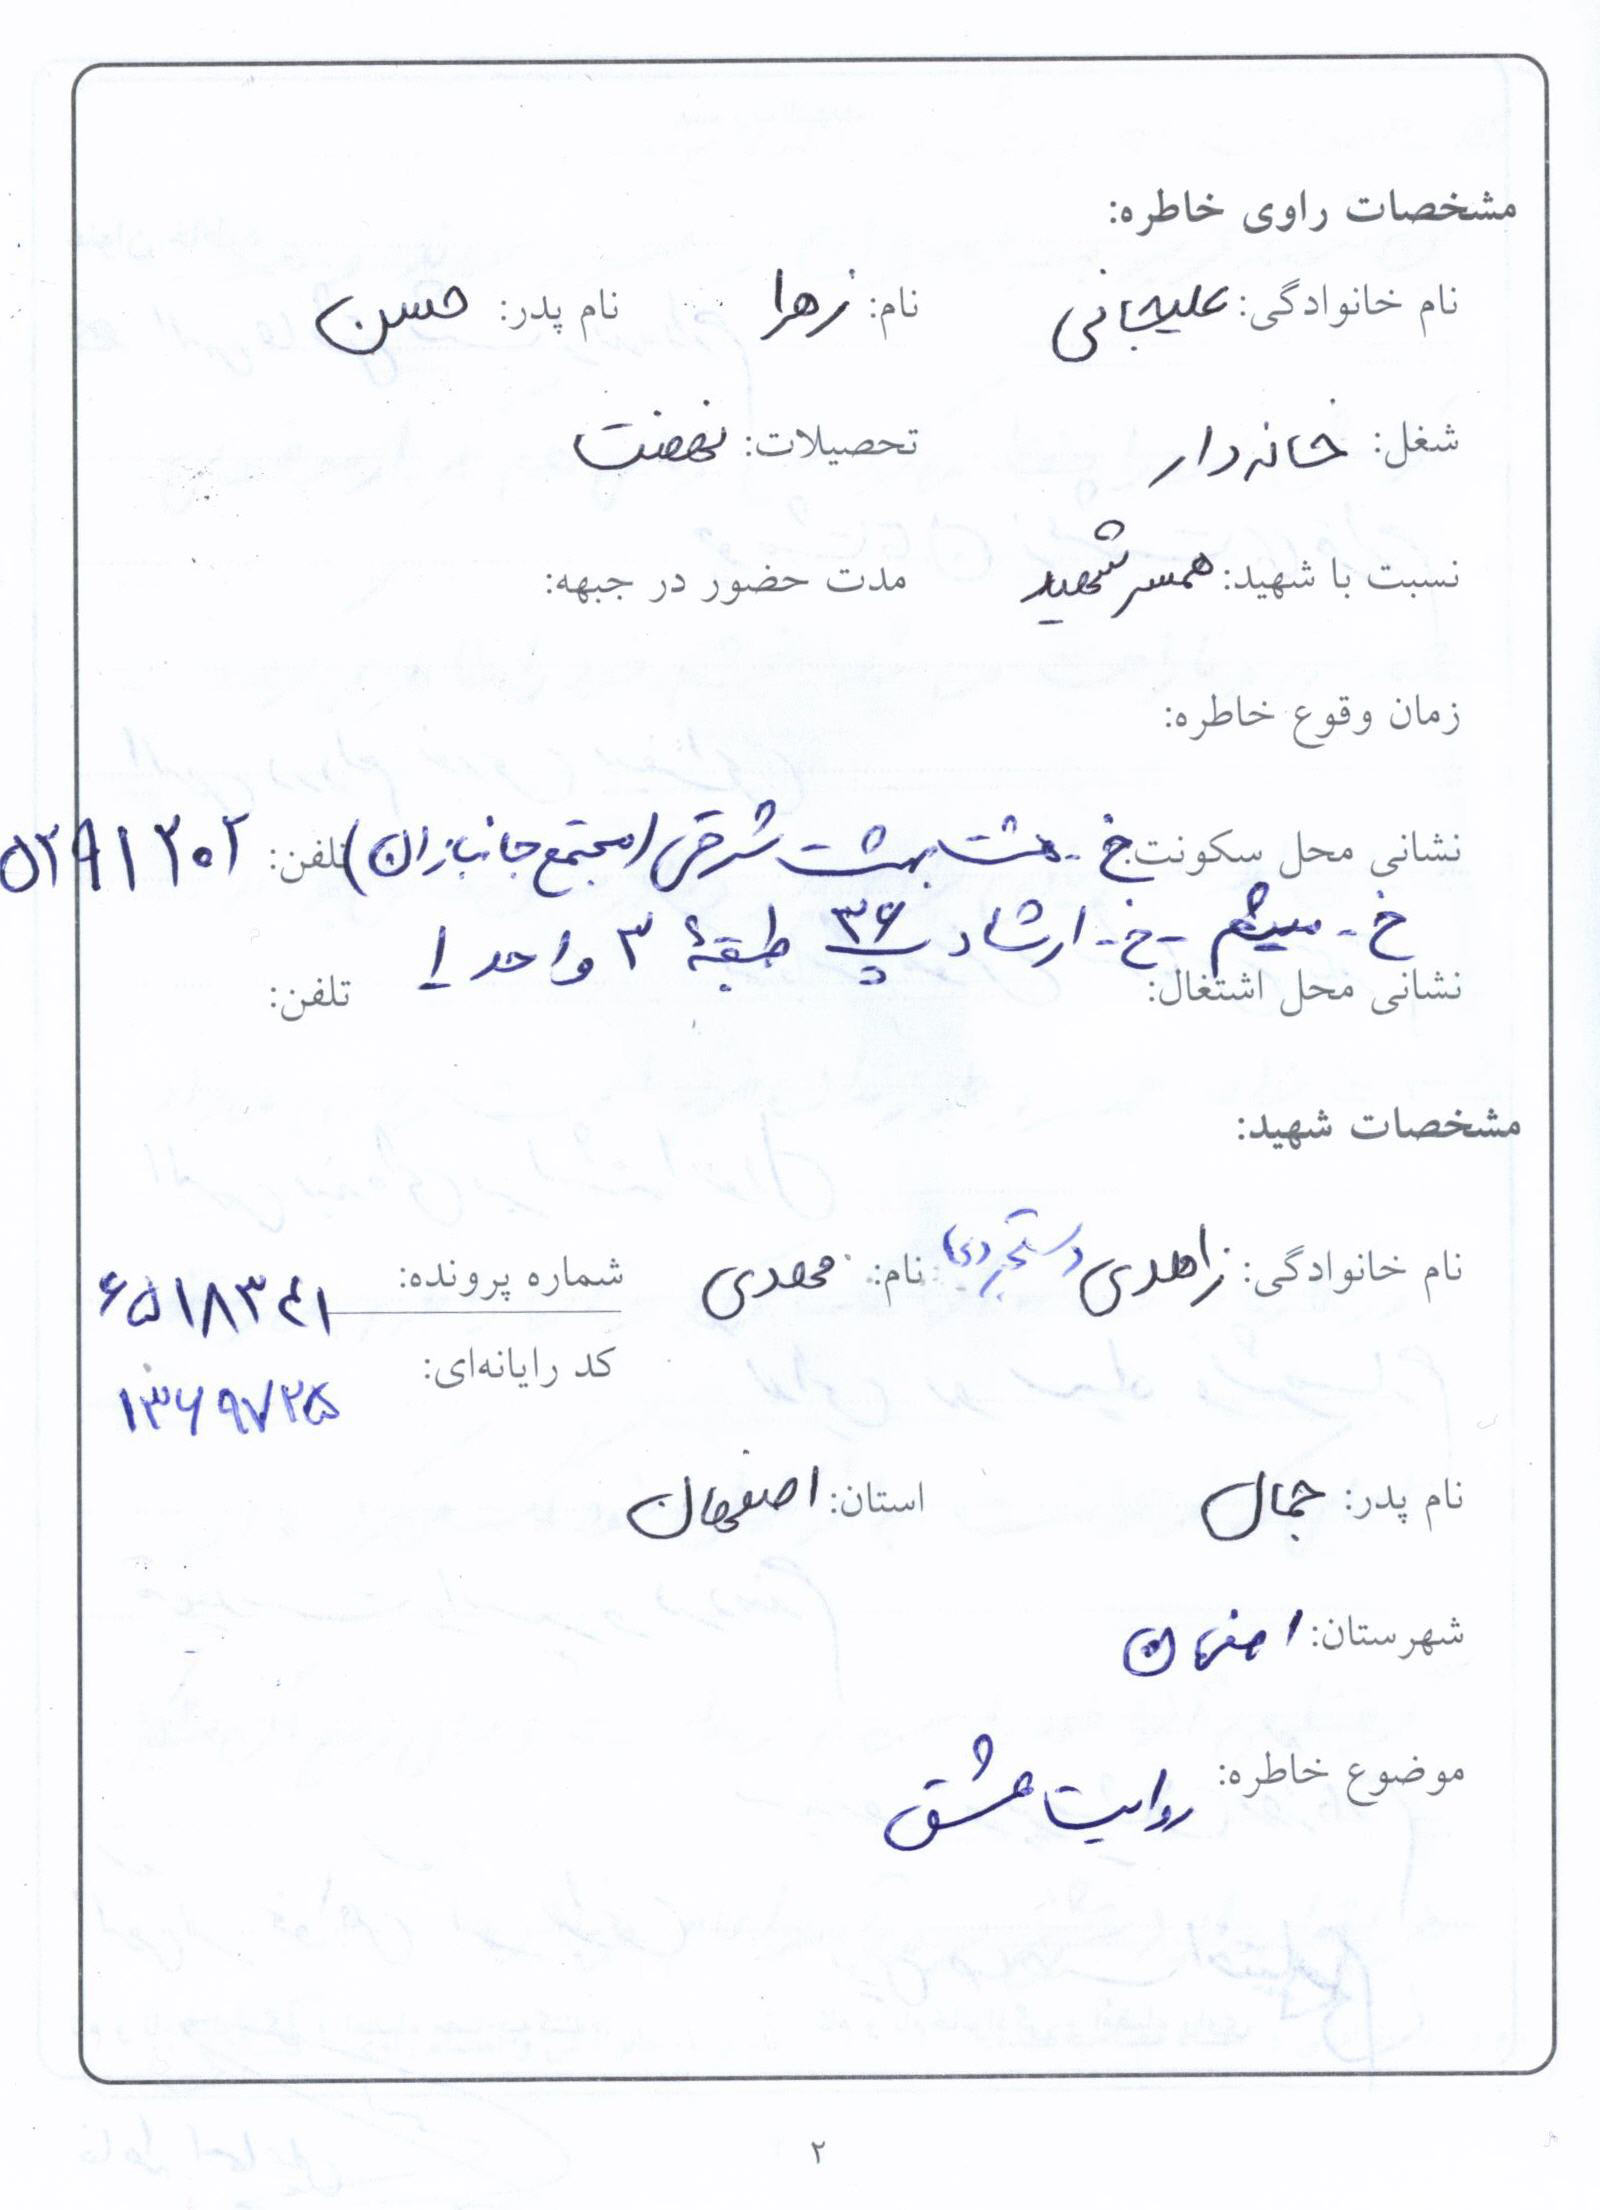 مشخصات راوی خاطره:
نام خانوادگی: علیجانی نام: زهرا نام پدر: حسن
شغل: خانه‌دار تحصیلات: نهضت
نسبت با شهید: همسر شهید مدت حضور در جبهه:
زمان وقوع خاطره:
نشانی محل سکونت: خ - هشت بهشت شرقی (مجتمع جانبازان) تلفن:
خ - میثم - خ - ارشاد پ ۳۶ طبقهٔ ۳ واحد ۱
نشانی محل اشتغال: تلفن:
مشخصات شهید:
نام خانوادگی: زاهدی دستجردی نام: مهدی شماره پرونده:
کد رایانه‌ای: ۱۳۶۹۷۲۵
نام پدر: جمال استان: اصفهان
شهرستان: اصفهان
موضوع خاطره: روایت عشق
۲